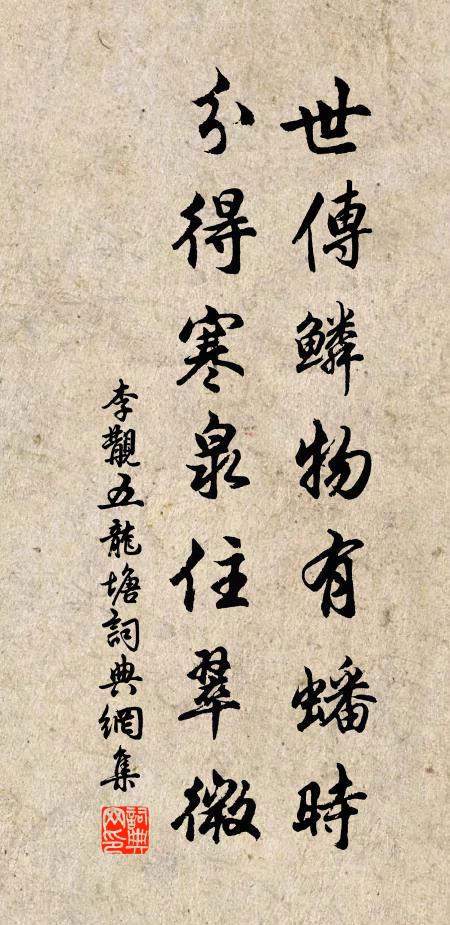 世傳鱗物有蟠時
分得寒泉住翠微
李觀五龍塘詞典網集
詞典網印